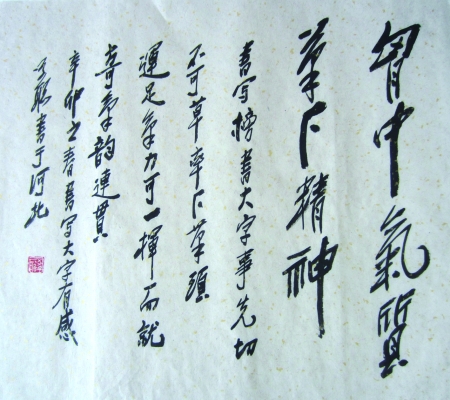 胷中氣質
筆下精神
書写榜書大字事先切
不可草率下筆須
運足氣力可一揮而就
奇筆韵連貫
辛卯之春書写大字有感
書于河北